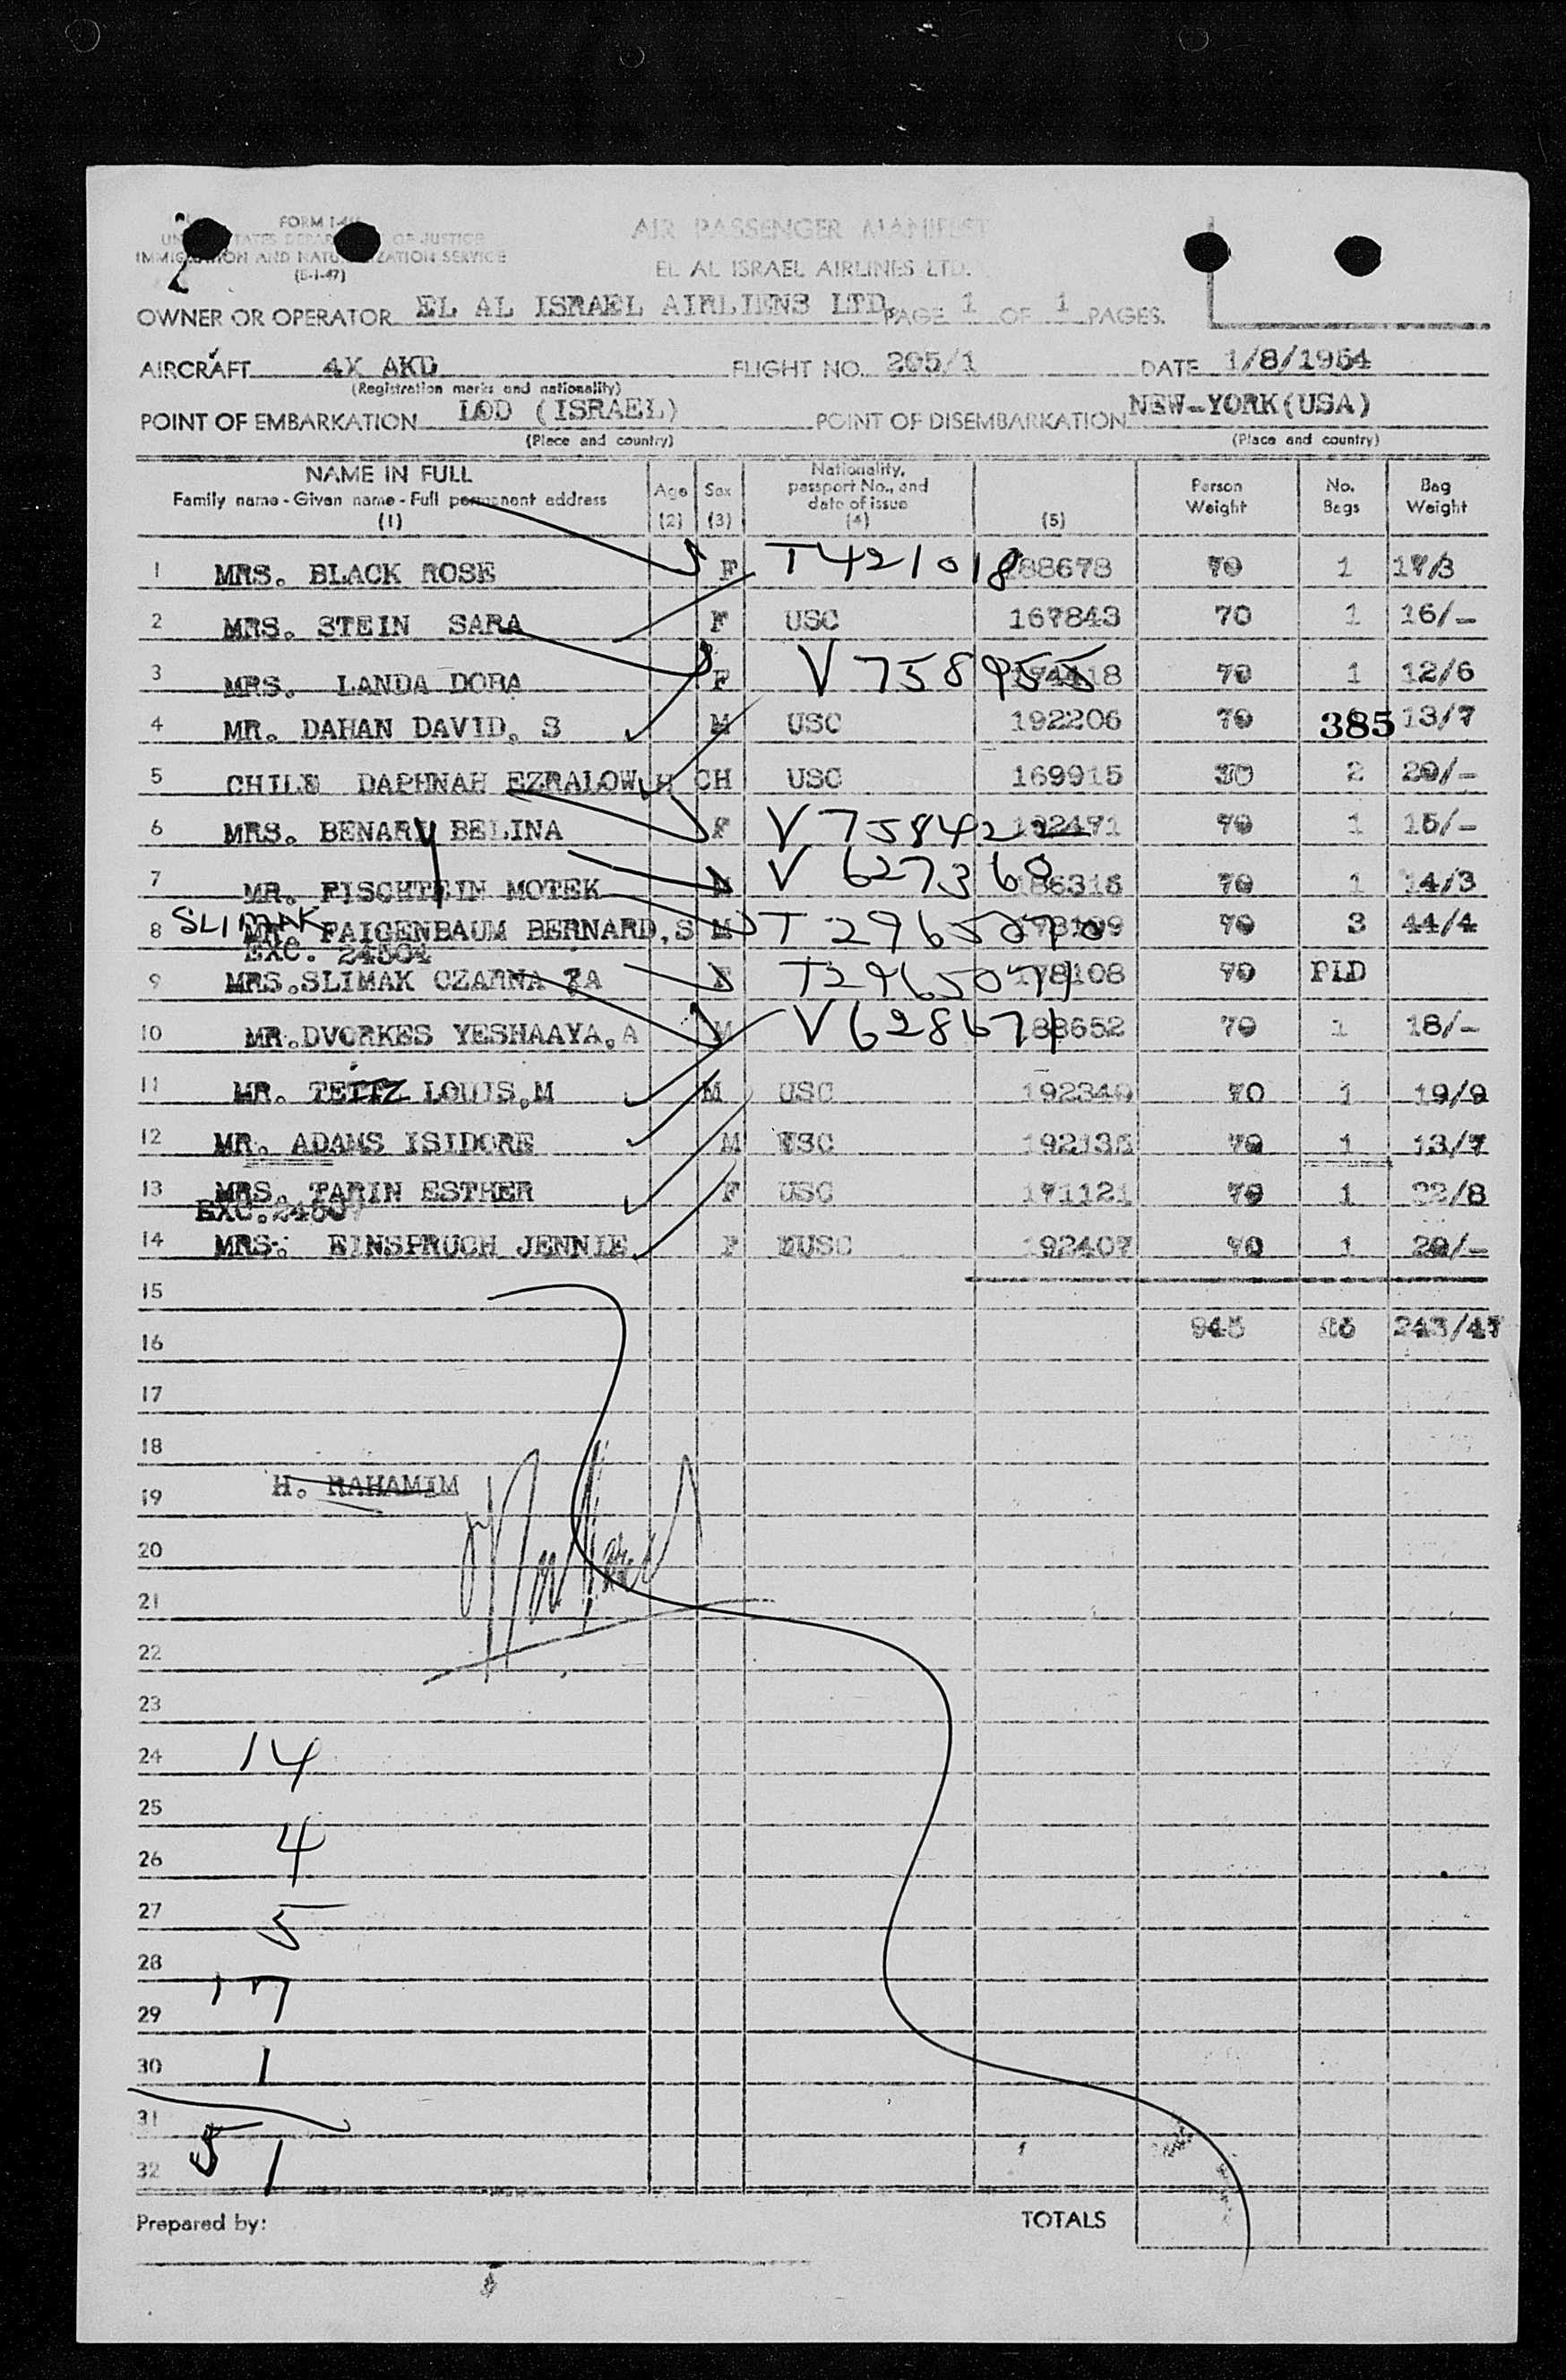 FORM I-
AIR PASSENGER MANIFEST
IMMIGRATION AND NATURALIZATION SERVICE
(5-1-47)
EL AL ISRAEL AIRLINES LTD.
OWNER OR OPERATOR EL AL ISRAEL AIRLIENS LTD. PAGE 1 OF 1 PAGES.
AIRCRAFT 4X AKD FLIGHT NO. 205/1 DATE 1/8/1954
(Registration marks and nationality)
POINT OF EMBARKATION LOD (ISRAEL) POINT OF DISEMBARKATION NEW-YORK(USA)
(Place and country) (Place and country)
NAME IN FULL Age Sex Nationality, passport No., and date of issue Person Weight No. Bags Bag Weight
Family name - Given name - Full permanent address
(1) (2) (3) (4) (5)
1 MRS. BLACK ROSE F T421018 188678 70 1 17/3
2 MRS. STEIN SARA F USC 167843 70 1 16/-
3 MRS. LANDA DORA F V758955 174418 70 1 12/6
4 MR. DAHAN DAVID, S M USC 192206 70 385 13/7
5 CHILE DAPHNAH EZRALOW, H CH USC 169915 30 2 20/-
6 MRS. BENARY BELINA F V758422 192471 70 1 15/-
7 MR. FISCHTEIN MOTEK M V627360 186316 70 1 14/3
8 SLIMAK MR. FAIGENBAUM BERNARD, S M T2965070 178109 70 3 44/4
EXC. 24504
9 MRS. SLIMAK CZARNA ZA F T2965071 178108 70 PLD
10 MR. DVORKES YESHAAYA, A M V628671 188652 70 1 18/-
11 MR. TEITZ LOUIS, M M USC 192340 70 1 19/9
12 MR. ADAMS ISIDORE M USC 192135 70 1 13/7
13 MRS. TARIN ESTHER F USC 171121 70 1 22/8
EXC. 24507
14 MRS. EINSPRUCH JENNIE F USC 192407 70 1 20/-
15
16 945 243/47
17
18
19 H. RAHAMIM
20
21
22
23
24 14
25
26 4
27 5
28
29 17
30 1
31
32 51
Prepared by: TOTALS